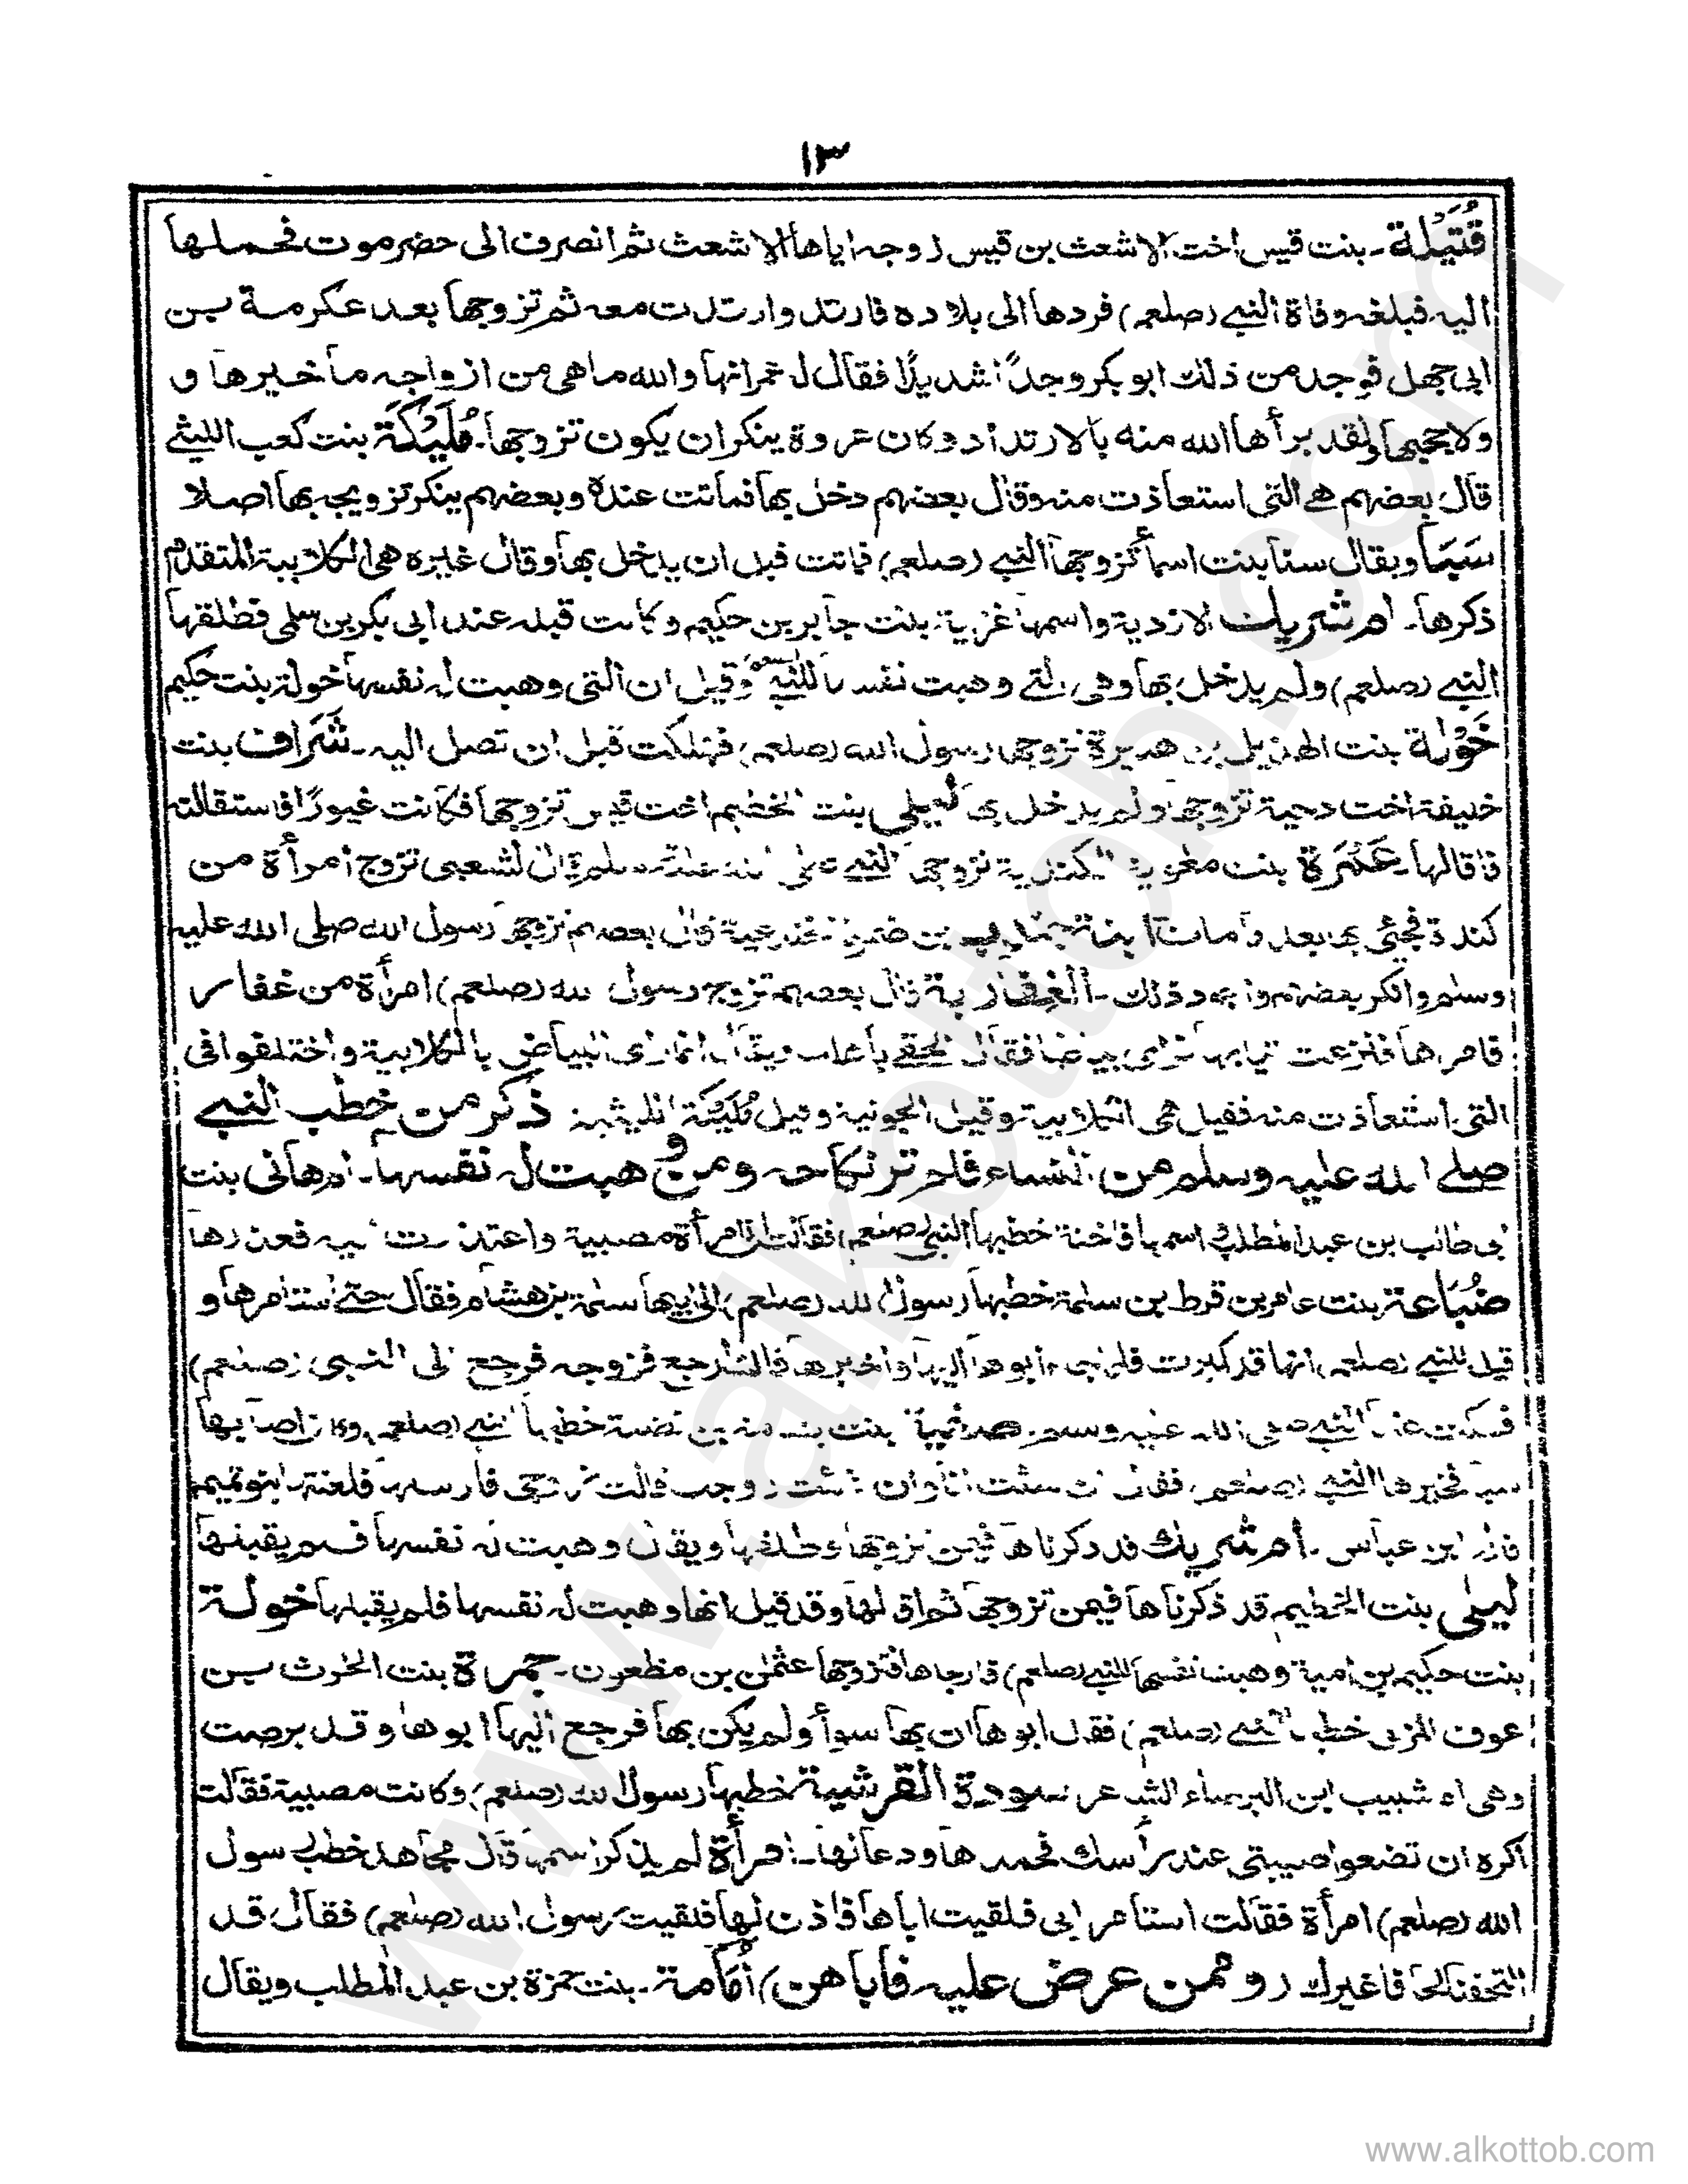 ١٣
قُتَيْلة ـ بنت قيس اخت الاشعث بن قيس زوجه اياها الاشعث ثم انصرف الى حضر موت فحملها
اليه فبلغه وفاة النبي (صلعم) فردها الى بلاده فارتد وارتدت معه ثم تزوجها بعد عكرمة بن
ابى جهل فوجد من ذلك ابو بكر وجداً شديداً فقال له عمر انها والله ما هى من ازواجه ما خيرها و
ولا حجبها ولقد برأها الله منه بالارتداد وكان عروة ينكر ان يكون تزوجها ـ مُلَيْكَة بنت كعب الليثي
قال بعضهم هي التى استعاذت منه وقال بعضهم دخل بها فماتت عنده وبعضهم ينكر تزويجه بها اصلا
سَبَا ويقال سنا بنت اسمأ تزوجها النبي (صلعم) فماتت قبل ان يدخل بها وقال غيره هى الكلابية المتقدم
ذكرها ـ ام شريك الازدية واسمها غزية بنت جابر بن حكيم وكانت قبله عند ابى بكر بن سلمى فطلقها
النبي (صلعم) ولم يدخل بها وهى التي وهبت نفسها للنبي وقيل ان التى وهبت له نفسها خولة بنت حكيم
خَوْلة بنت الهذيل بن هبيرة تزوجها رسول الله (صلعم) فهلكت قبل ان تصل اليه ـ شَرَاف بنت
خليفة اخت دحية تزوجها ولم يدخل بها ليلى بنت الخطيم اخت قيس تزوجها فكانت غيورًا فاستقالته
فاقالها ـ عَمْرَة بنت معوية الكندية تزوجها النبي قال الشعبى تزوج امرأة من
كندة فجئي بها بعد وفات قال بعضهم تزوجها رسول الله صلى الله عليه
وسلم وانكر بعضهم ذلك ـ الغِفَارية قال بعضهم تزوج رسول الله (صلعم) امرأة من غفار
فامرها فنزعت ثيابها فقال الحقي باهلك ويقال انما رى البياض بالكلابية واختلفوا فى
التى استعاذت منه فقيل هى الكلابية وقيل الجونية وقيل مُلَيْكَة الليثية ذكر من خطب النبي
صلي الله عليه وسلم من النساء فلم تم نكاحه ومن وهبت له نفسها ـ ام هانى بنت
ابى طالب بن عبد المطلب اسمها فاختة خطبها النبى (صلعم) فقالت انى امرأة مصبية واعتذرت اليه فعذرها
ضُبَاعة بنت عامر بن قرط بن سلمة خطبها رسول الله (صلعم) الى ابنها سلمة بن هشام فقال حتي استامرها و
قيل للنبي (صلعم) انها قد كبرت فلما ابوها اليها واخبرها قالت ارجع فزوجه فرجع الى النبى (صلعم)
فسكت عنها النبي صلى الله عليه وسلم صفية بنت بشامة بن نضلة خطبها النبي (صلعم) وكان اصابها
سبى فخيرها النبي (صلعم) فقال ان شئت انا وان شئت زوجك قالت زوجى فارسلها فلعنتها بنو تميم
قاله ابن عباس ـ ام شريك قد ذكرناها فيمن تزوجها وطلقها ويقال وهبت له نفسها فلم يقبلها
ليلى بنت الخطيم قد ذكرناها فيمن تزوجها ثم اقالها وقد قيل انها وهبت له نفسها فلم يقبلها خولة
بنت حكيم بن امية وهبت نفسها للنبي (صلعم) فارجاها فتزوجها عثمن بن مظعون ـ جمرة بنت الحرث بن
عوف المزنى خطبها النبي (صلعم) فقال ابوها ان بها سوأ ولم يكن بها فرجع اليها ابوها وقد برصت
وهى ام شبيب ابن البرصاء الشاعر سودة القرشية خطبها رسول الله (صلعم) وكانت مصبية فقالت
اكره ان تضعوا صبيتى عند رأسك فحمدها ودعا لها ـ امرأة لم يذكر اسمها قال مجاهد خطب رسول
الله (صلعم) امرأة فقالت استامر ابى فلقيت اباها فاذن لها فلقيت رسول الله (صلعم) فقال قد
التحفنا لحافا غيرك (وممن عرض عليه فاباهن) اُمَامة ـ بنت حمزة بن عبد المطلب ويقال
www.alkottob.com